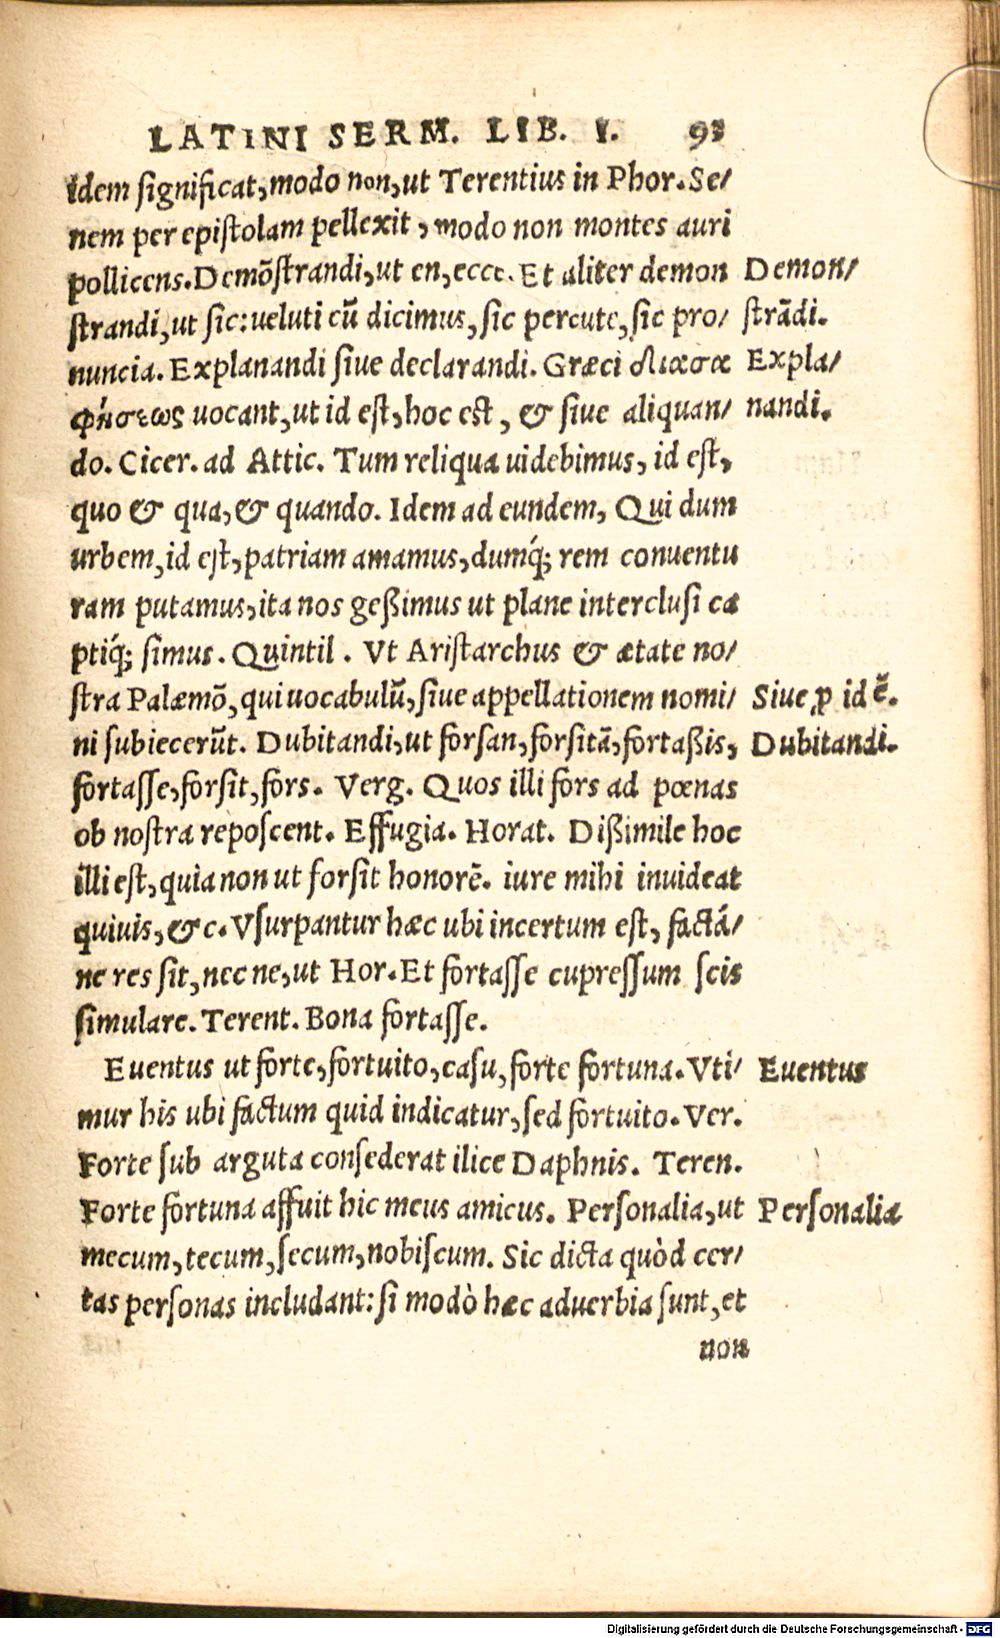 LATINI SERM. LIB. I. 93
idem significat, modo non, ut Terentius in Phor. Se/
nem per epistolam pellexit, modo non montes auri
pollicens. Demõstrandi, ut en, ecce. Et aliter demon
Demon/
strandi, ut sic: ueluti cũ dicimus, sic percute, sic pro/
strãdi.
nuncia. Explanandi siue declarandi. Græci διασα
Expla/
φήσεως uocant, ut id est, hoc est, & siue aliquan/
nandi.
do. Cicer. ad Attic. Tum reliqua uidebimus, id est,
quo & qua, & quando. Idem ad eundem, Qui dum
urbem, id est, patriam amamus, dumq́; rem conuentu
ram putamus, ita nos geßimus ut plane interclusi ca
ptiq́; simus. Quintil. Vt Aristarchus & ætate no/
stra Palæmõ, qui uocabulũ, siue appellationem nomi/
Siue ꝓ id ẽ.
ni subiecerũt. Dubitandi, ut forsan, forsitã, fortaßis,
Dubitandi.
fortasse, forsit, fors. Verg. Quos illi fors ad pœnas
ob nostra reposcent. Effugia. Horat. Dißimile hoc
illi est, quia non ut forsit honorẽ. iure mihi inuideat
quiuis, &c. Vsurpantur hæc ubi incertum est, factã/
ne res sit, nec ne, ut Hor. Et fortasse cupressum scis
simulare. Terent. Bona fortasse.
Euentus ut forte, fortuito, casu, forte fortuna. Vti/
Euentus
mur his ubi factum quid indicatur, sed fortuito. Ver.
Forte sub arguta consederat ilice Daphnis. Teren.
Forte fortuna affuit hic meus amicus. Personalia, ut
Personalia
mecum, tecum, secum, nobiscum. Sic dicta quòd cer/
tas personas includant: si modò hæc aduerbia sunt, et
non
Digitalisierung gefördert durch die Deutsche Forschungsgemeinschaft - DFG